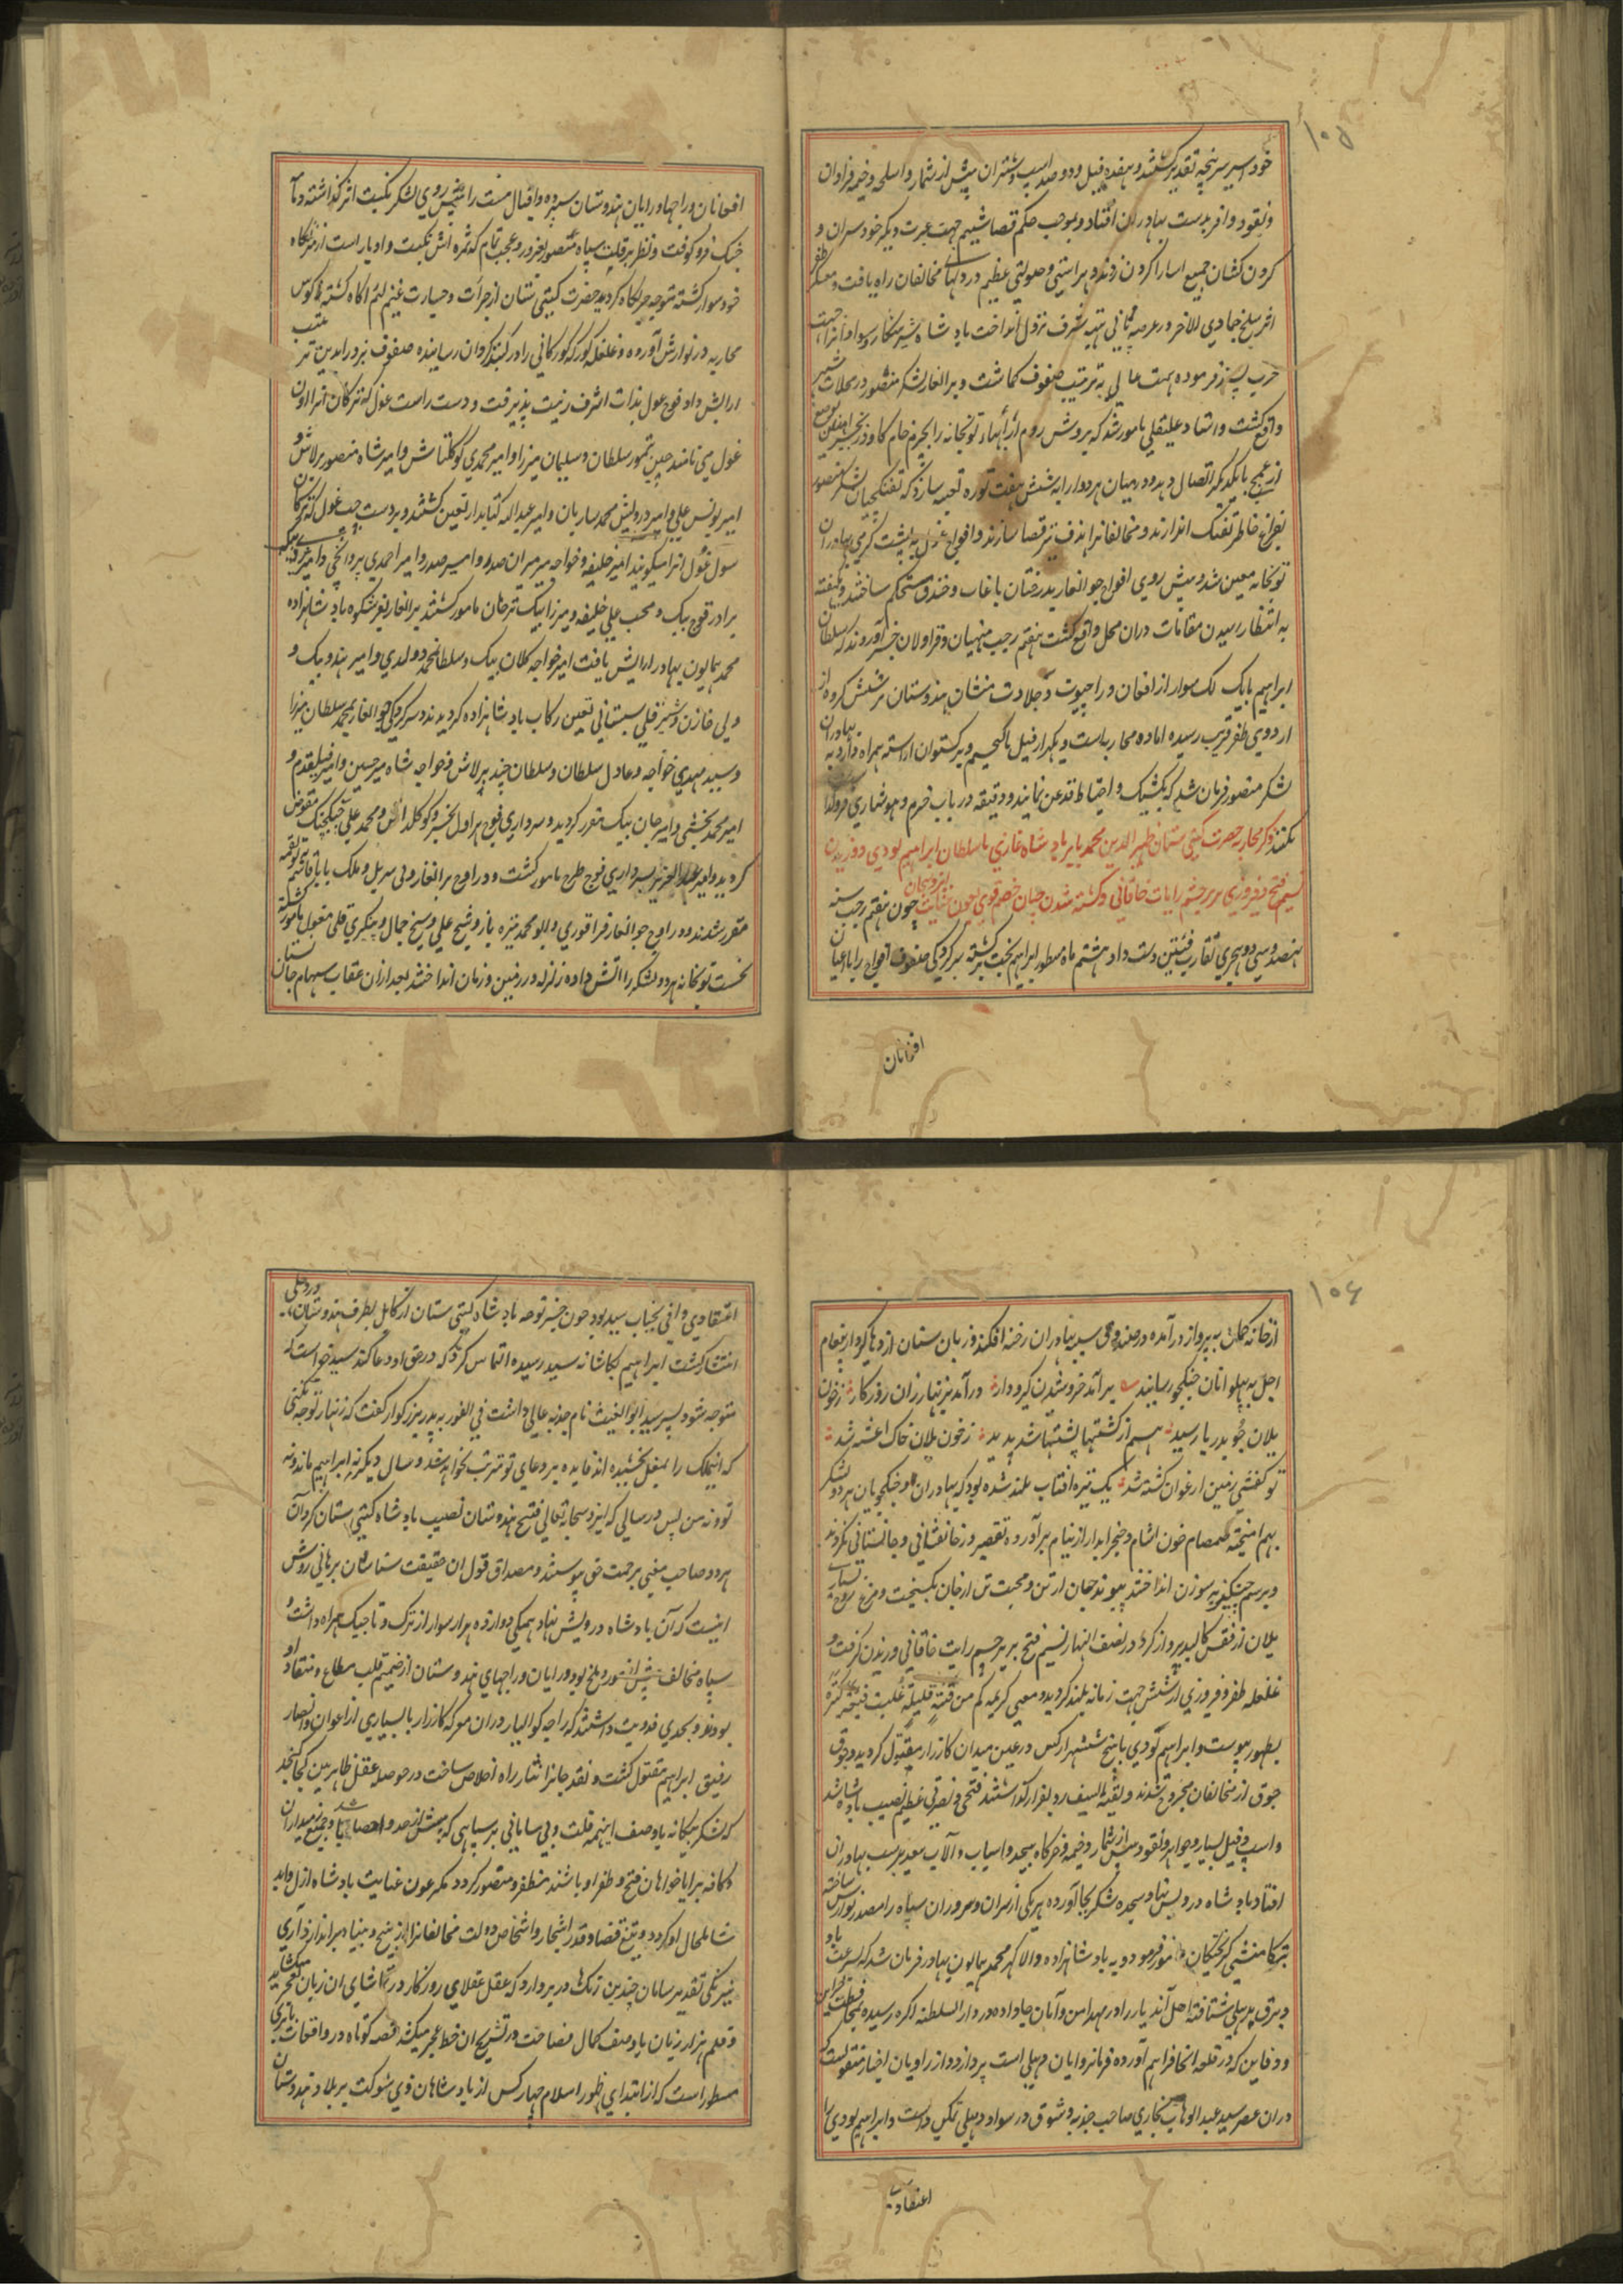 ۱۰۵
خود اسیر سرپنجه تقدیر گشتند و هفده فیل و دو صد اسپ و شتران بیش از شمار و اسلحه و خیمه فراوان
و نقود وافر بدست بهادران افتاد و بموجب حکم قضا شیم جهت عبرت دیگر خود سران و
گردن کشان جمیع اسارا را گردن زدند و هراسی و صولتی عظیم در دلهای مخالفان راه یافت و معسکر ظفر
اثر بسلخ جمادی الاخر در عرصه پانی پته شرف نزول انداخت بادشاه شیر شکار سواد آنرا جهت
حرب پسند فرموده همت عالی به ترتیب صفوف کماشت و برانغار لشکر منصور در محلات شهر
واقع گشت و استاد علیقلی مامور شد که بروش روم ارابهاء توپخانه را بچرم خام گاو و زنجیر
از هیچ با یکدیگر اتصال دهد و درمیان هر دو ارابه شش هفت توره تعبیه سازد که تفنگچیان لشکر منصور
بفراغ خاطر تفنگ اندازند و مخالفانرا هدف تیر قضا سازند و افواج غول به پشت گرمی بهادران
توپخانه معین شد و پیش روی افواج جوانغار بدرختان با غاب و خندق مستحکم ساختند و یکهفته
به انتظار رسیدن مقامات دران محل واقع گشت هفتم رجب منهیان و قراولان خبر آوردند که سلطان
ابراهیم با یک لک سوار از افغان و راجپوت و جلادت منشان هندوستان بر شش کروه از
اردوی ظفر قریب رسیده اماده محاربه است و یکهزار فیل با کجیم و برکستوان اراسته همراه دارد به بهادران
لشکر منصور فرمان شد که بکشیک و احتیاط قدغن نمایند و دقیقه در باب حزم و هوشیاری فرو گذاشت
نکنند ذکر محاربه حضرت گیتی ستان ظهیر الدین محمد بابر بادشاه غازی با سلطان ابراهیم لودی و وزیدن
نسیم فتح و فیروزی بر پرچم رایات خاقانی و کشته شدن چنان خصم قوی بعون عنایت یزد سبحان چون هفتم رجب سنه
نهصد و سی و دو هجری تقارب فئتین دست داد هشتم ماه مسطور ابراهیم بخت برگشته بسرکردگی صفوف افواج را باعیان
افغانان
افغانان و راجها و رایان هندوستان سپرده و اقبال مست را پیش روی لشکر نکبت اثر گذاشته دمآ
خبک فرو کوفت و نظر بر قلت سپاه منصور بغرور و عجب تمام که ثمره اش نکبت و ادبار است از منزلگاه
خود سوار گشته متوجه حربگاه گردید حضرت گیتی ستان از جرأت و جسارت غنیم لئیم آگاه گشته کوس
محاربه در نوازش آورده و غلغله کورکه کورکانی را در گنبد گردان رسانیده صفوف نبرد را بدین ترتیب
ارایش داد فوج غول بذات اشرف زینت پذیرفت و دست راست غول که ترکان آنرا اون
غول می نامند چین تیمور سلطان و سلیمان میرزا و امیر محمدی کوکلتاش و امیر شاه منصور برلاش و
امیر یونس علی و امیر درویش محمد ساربان و امیر عبد الله کتابدار تعین گشتند و بر دست چپ غول که ترکان
سول غول انرا میگویند امیر خلیفه و خواجه میر میران صدر و امیر احمدی پروانچی و امیر تردی بیک
برادر قوچ بیک و محب علی خلیفه و میرزا بیک ترخان مامور گشتند برانغار بفر شکوه بادشاهزاده
محمد همایون بهادر ارایش یافت امیر خواجه کلان بیک و سلطان محمد دولدی و امیر هندو بیک و
ولی خازن و شیر قلی سیستانی تعین رکاب بادشاهزاده گردیدند و سرکردگی جوانغار بمحمد سلطان میرزا
و سید مهدی خواجه و عادل سلطان و سلطان جنید برلاش و خواجه شاه میر حسین و امیر قتلقدم و
امیر محمد بخشی و امیر جان بیک مقرر گردید و سرداری فوج هراول بخسرو کوکلداش و محمد علی جنکجنک مفوض
گردید و امیر عبد العزیز بسرداری فوج طرح مامور گشت و در اوج برانغار ولی سریل و ملک بابا قاشقه به تولقمه
مقرر شدند و در اوج جوانغار قراقوزی و ابو المحمد نیزه باز و شیخ علی و شیخ جمال و تنکری قلی مغول مامور گشتند
نخست توپخانه هر دو لشکر را آتش داده زلزله در زمین و زمان انداختند بعد ازان عقاب سهام جان ستان
۱۰۶
از خانه کمان به پرواز در آمده در صندوق سینه بهادران رخنه افکند و زبان سنان اژدها کردار پیغام
اجل به پهلوانان جنگجو رسانید ؞ برآمد خروشیدن گیرودار ؞ درآمد بزنهار زان روزگار ؞ ز خون
یلان جو بدریا رسید ؞ هم از کشتها پشتها شد پدید ؞ ز خون یلان خاک اغشته شد ؞
تو گفتی زمین ارغوان کشته شد ؞ یک نیزه افتاب بلند شده بود که بهادران و جنگجویان هر دو لشکر
بهم امیخته صمصام خون اشام و خنجر ابدار از نیام برآورده تقصیر در جانفشانی و جانستانی نکردند
و برسم چنگیزیه سوزن انداختند پیوند جهان از تن و محبت تن از جان بگسیخت و مرغ روح
یلان از قفس کالبد پرواز کرد در نصف النهار نسیم فتح بر پرچم رایت خاقانی وزیدن گرفت و
غلغله ظفر و فیروزی از شش جهت زمانه بلند گردید و معنی کریمه کم من فئة قلیلة غلبت فئة کثیرة
بظهور پیوست و ابراهیم لودی با پنج شش هزار کس در عین میدان کارزار مقتول گردید و جوق
جوق از مخالفان مجروح شدند و بقیة السیف رو بفرار گذاشتند فتحی و نصرتی عظیم نصیب بادشاه شد
و اسپ و فیل بسیار و جواهر و نقود بیش از شمار و خیمه و خرگاه بیحد و اسباب و آلات بیعد بدست بهادران
افتاد بادشاه درویش نهاد سجده شکر بجا آورده هر یکی از سران و سروران سپاه را مصدر نوازش ساخته
بتکامشی گریختگان مامور فرمود و به بادشاهزاده والا گهر محمد همایون بهادر فرمان شد که بسرعت باد
و برق بدهلی شتافته اهل آن دیار را در مهد امن و آمان جا داده در دار السلطنه اگره رسیده بمحافظت خزاین
و دفاین که در قلعه انجا فراهم آورده فرمانروایان دهلی است پردازد و از راویان اخبار منقولست که
دران عصر سید عبد الوهاب بخاری صاحب جذبه و شوق در سواد دهلی تمکن داشت و ابراهیم لودی را
اعتقادی
اعتقادی وافی بجناب سید بود چون خبر توجه بادشاه گیتی ستان از کابل بطرف هندوستان در دهلی
انتشار گشت ابراهیم بکاشانه سید رسیده التماس کرد که در حق او دعا کند سید خواست که
متوجه شود پسر سید ابو الغیث نام جذبه عالی داشت فی الفور به پدر بزرگوار گفت که زنهار توجه نکنی
که اینملک را بمغل بخشیده اند فایده بر دعای تو مترتب نخواهد شد و سال دیگر نه ابراهیم ماند و نه
تو و نه من پس در سالی که ایزد سبحانه تعالی فتح هندوستان نصیب بادشاه گیتی ستان کرد آن
هر دو صاحب معنی برحمت حق پیوستند و مصداق قول ان حقیقت شناسان برهانی روشن
اینست که آن بادشاه درویش نهاد همگی دوازده هزار سوار از ترک و تاجیک همراه داشت و
سپاه مخالف بیش از مور و ملخ بود و رایان و راجهای هندوستان از صمیم قلب مطاع و منقاد او
بودند و بحدی فدویت داشتند که راجه کوالیار دران معرکه کارزار با بسیاری از اعوان و انصار
رفیق ابراهیم مقتول گشت و نقد جانرا نثار راه اخلاص ساخت در حوصله عقل ظاهربین کجا گنجد
که لشکر بیگانه با وصف اینهمه قلت و بی سامانی بر سپاهی که بیش از حد و احصا باشد و جمیع زمیداران
و کافه برایا خواهان فتح و ظفر او باشند مظفر و منصور گردد مگر عون عنایت بادشاه ازل و ابد
شامل حال او گردد و تیغ قضا و قدر اشجار و اشخاص دولت مخالفانرا از بیخ و بنیاد براندازد آری
نیرنگی تقدیر سامان چندین رنگ در پرده دارد که عقل عقلای روزگار در تماشای ان زبان بعجز میکشاید
و قلم هزار زبان با وصف کمال فصاحت در تشریح ان خط عجز میکشد قصه کوتاه در واقعات بابری
مسطور است که از ابتدای ظهور اسلام چهار کس از بادشاهان ذی شوکت بر بلاد هندوستان